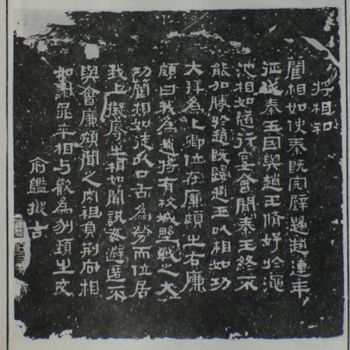 将相和
藺相如使秦既完辟歸趙連年
征伐秦王因與趙王脩好於澠
池相如隨行宴會間秦王終不
能加勝於趙既歸趙王以相如功
大拜為上卿位在廉頗之右廉
頗曰我為趙將有攻城野戰之大
功藺相如徒以口舌為勞而位居
我上擬辱之相如聞訊避匿不
與會廉頗聞之肉袒負荊向相
如謝罪卒相与歡為刎頸之交
俞鑑